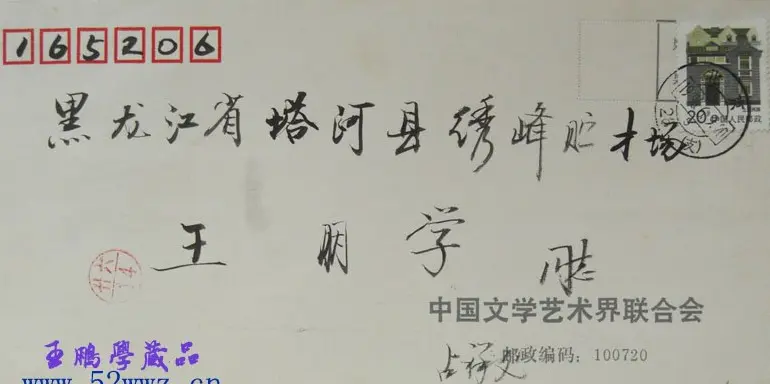 165206
20
中国人民邮政
黑龙江省塔河县绣峰贮才场
王朋学 同志
中国文学艺术界联合会
邮政编码：100720
王鹏學藏品
www.52wwz.cn